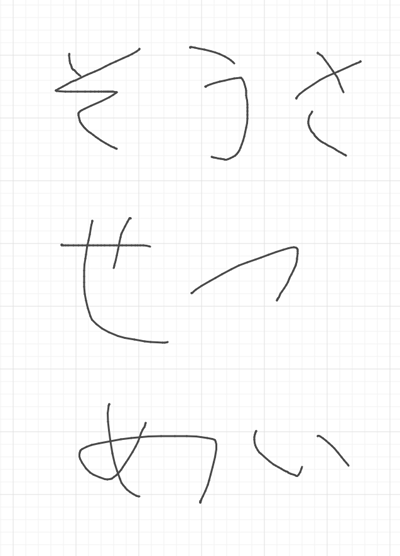 そうさ
せつ
めい